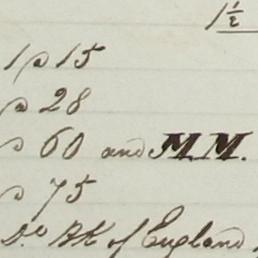 1½
1 p 15
p 28
p 60 and M.M.
p 75
Do. Bk of England